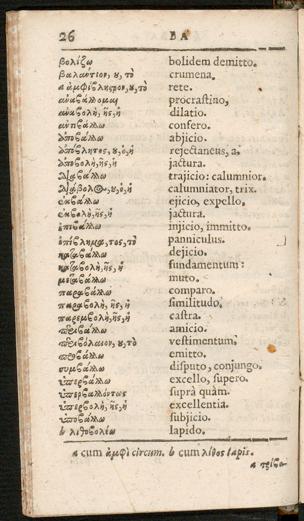 26 ΒΑ
βολίζω bolidem demitto.
βαλάντιον, ου, τὸ crumena.
a ἀμφίβληστρον, ου, τὸ rete.
ἀναβάλλομαι procrastino,
ἀναβολὴ, ῆς, ἡ dilatio.
ἀντιβάλλω confero.
ἀποβάλλω abjicio.
ἀπόβλητος, ου, ὁ, ἡ rejectaneus, a.
ἀποβολὴ, ῆς, ἡ jactura.
διαβάλλω trajicio: calumnior.
διάβολος, ου, ὁ, ἡ calumniator, trix.
ἐκβάλλω ejicio, expello.
ἐκβολὴ, ῆς, ἡ jactura.
ἐπιβάλλω injicio, immitto.
ἐπίβλημα, τος, τὸ panniculus.
καταβάλλω dejicio.
καταβολὴ, ῆς, ἡ fundamentum:
μεταβάλλω muto.
παραβάλλω comparo.
παραβολὴ, ῆς, ἡ similitudo,
παρεμβολὴ, ῆς, ἡ castra.
περιβάλλω amicio.
περιβόλαιον, ου, τὸ vestimentum,
προβάλλω emitto.
συμβάλλω disputo, conjungo.
ὑπερβάλλω excello, supero.
ὑπερβαλλόντως suprà quàm.
ὑπερβολὴ, ῆς, ἡ excellentia.
ὑποβάλλω subjicio.
b λιθοβολέω lapido.
a cum ἀμφὶ circum. b cum λίθος lapis.
a τρίβω